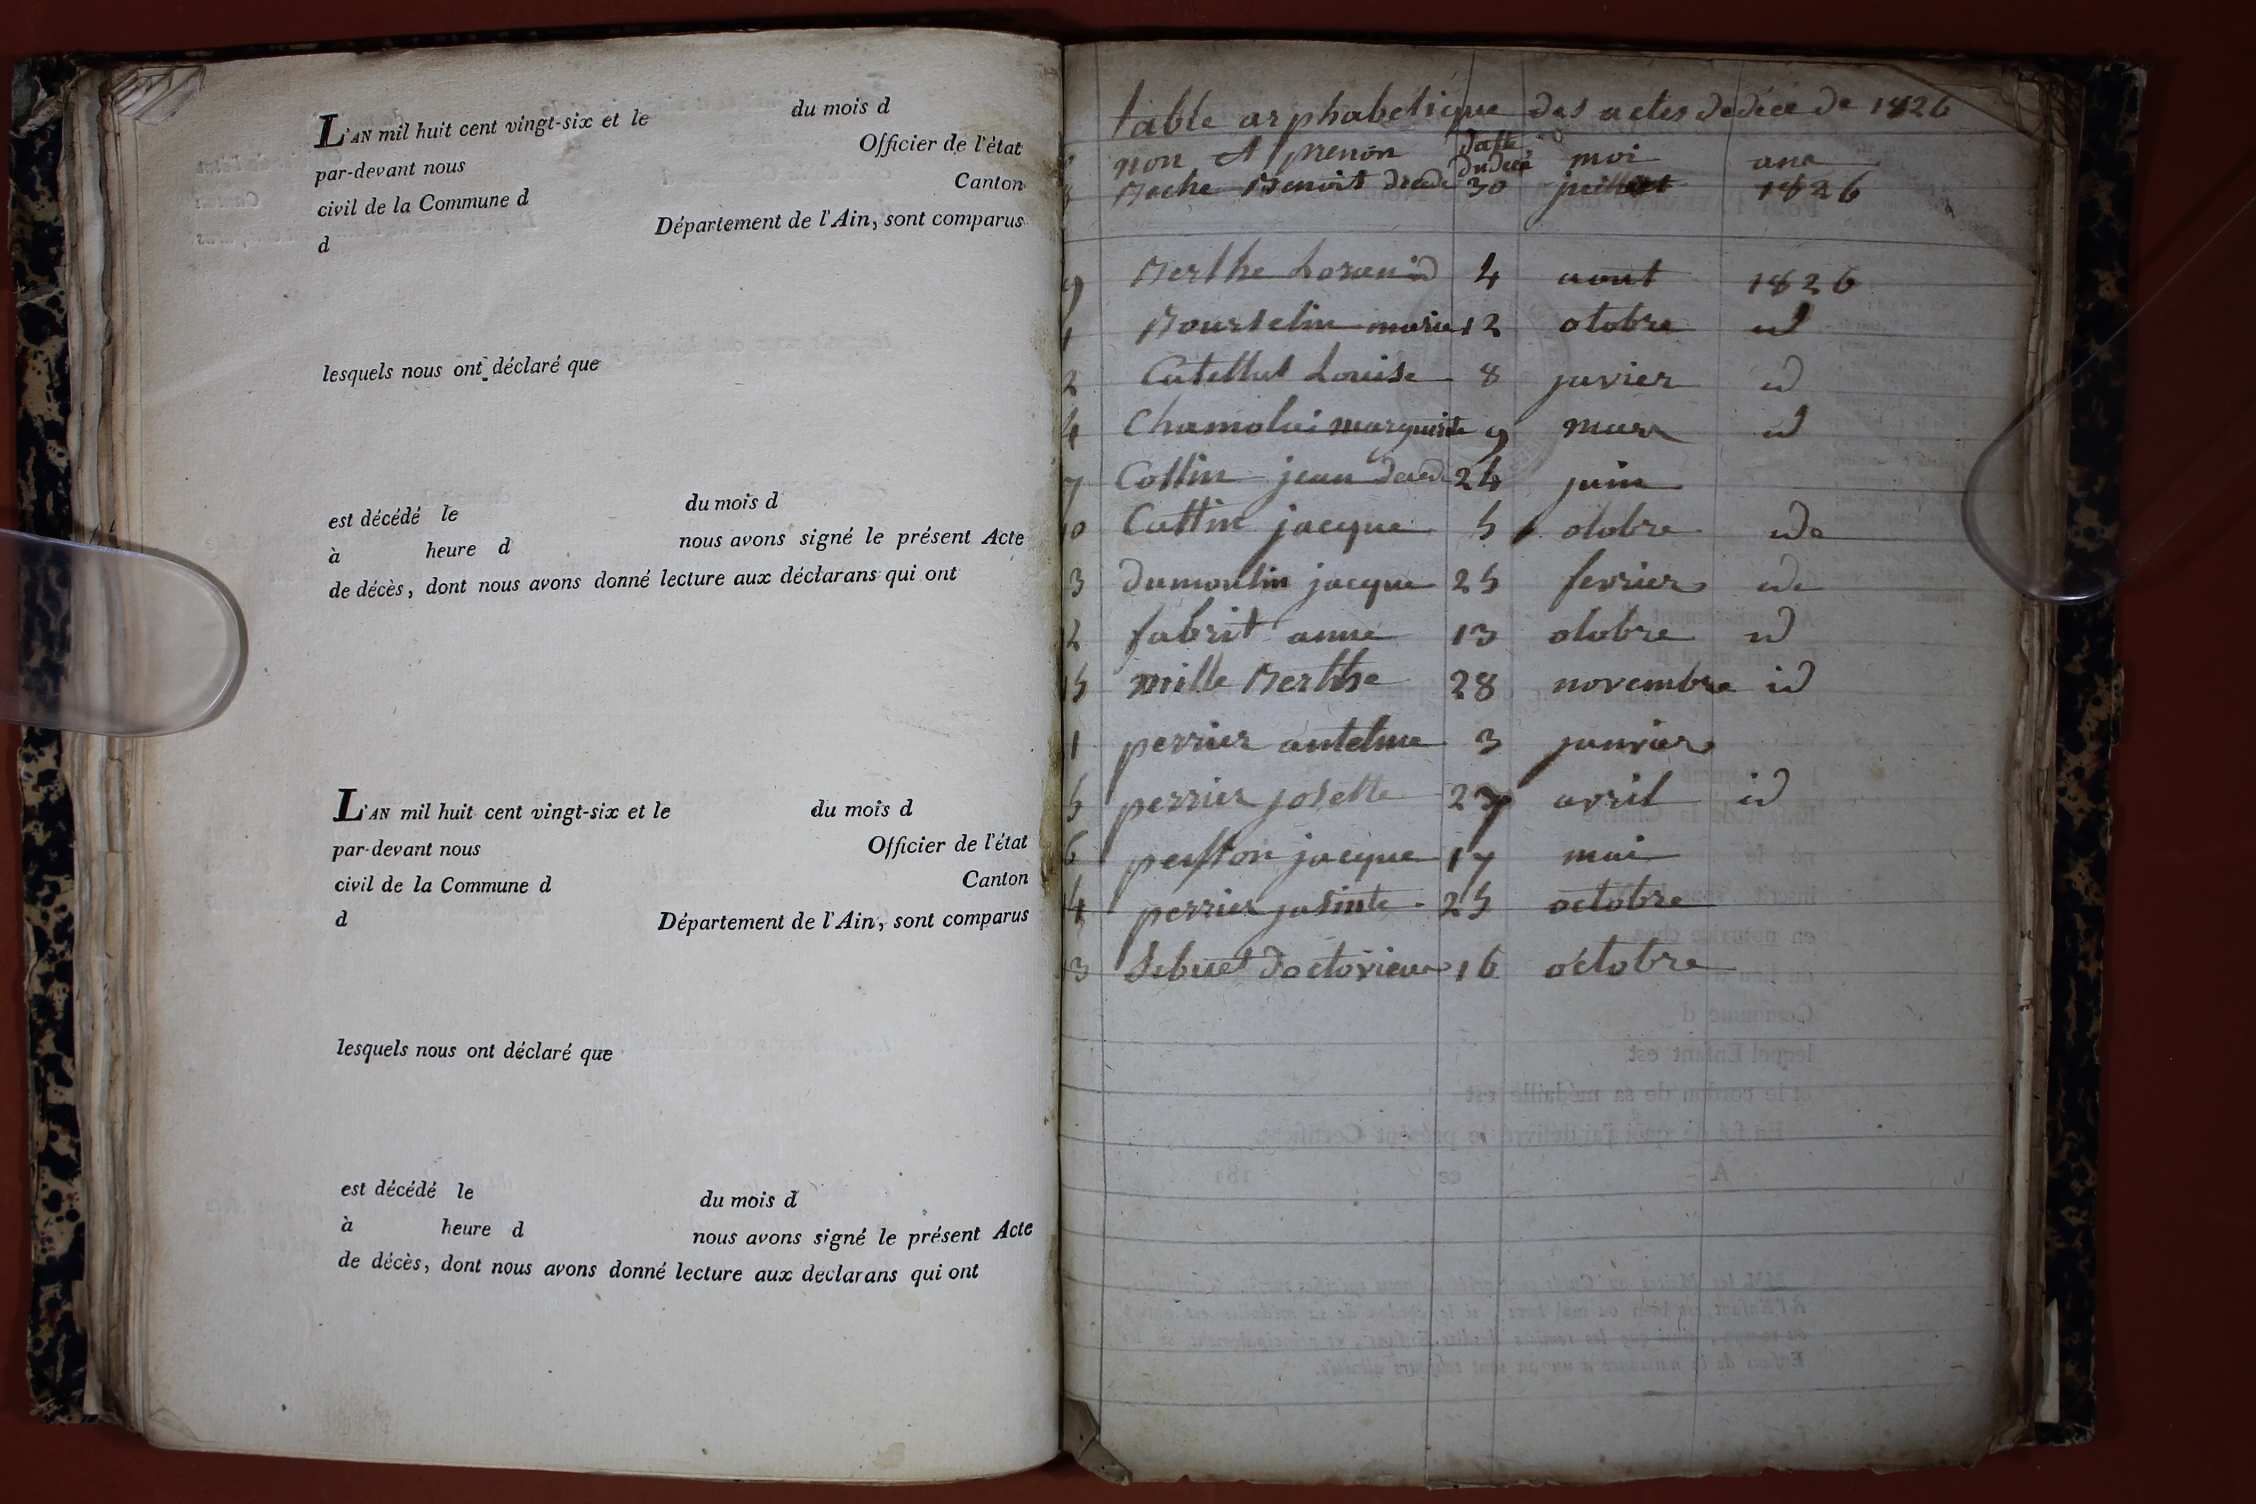 L'AN mil huit cent vingt-six et le du mois d
par-devant nous Officier de l'état
civil de la Commune d Canton
d Département de l'Ain, sont comparus
lesquels nous ont déclaré que
est décédé le du mois d
à heure d nous avons signé le présent Acte
de décès, dont nous avons donné lecture aux déclarans qui ont
L'AN mil huit cent vingt-six et le du mois d
par-devant nous Officier de l'état
civil de la Commune d Canton
d Département de l'Ain, sont comparus
lesquels nous ont déclaré que
est décédé le du mois d
à heure d nous avons signé le présent Acte
de décès, dont nous avons donné lecture aux declarans qui ont
table arphabetique des actes dedéce de 1826
non et prenon datte dudecé moi ane
8 Boche Benoit 30 juillet 1826
9 Berthe 4 aout 1826
1 Bourselin marie 12 otobre id
2 Catellut Louise 8 javier id
4 Chamolai marguerite 9 mars id
7 Collin jean 24 juin
10 Cattin jacque 5 otobre ide
3 dumoulin jacque 25 fevrier ide
2 fabrit anne 13 otobre id
15 mille Berthe 28 novembre id
1 perrier antelme 3 janvier
5 perrier josette 27 avril id
6 jacque 17 mai
4 perrier jasinte 25 octobre
3 Sebuet 16 octobre